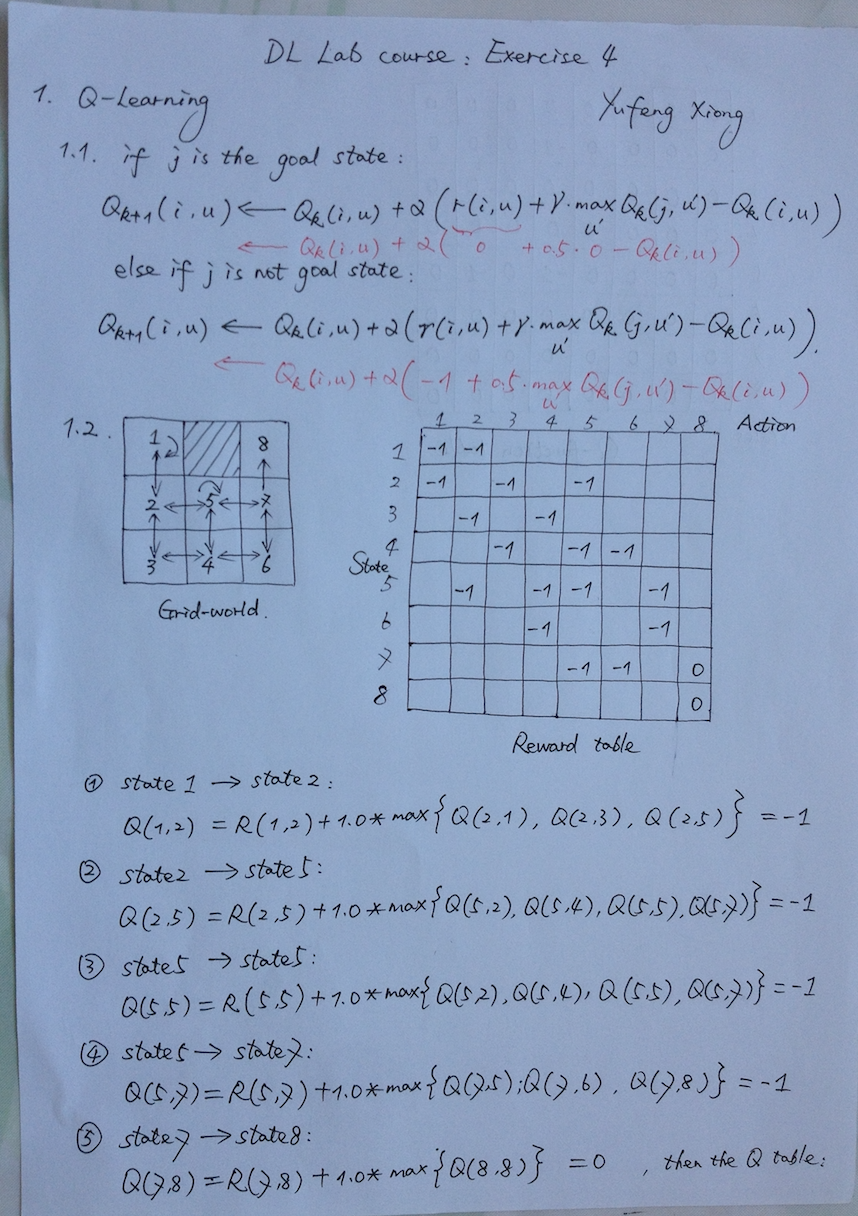 DL Lab course : Exercise 4
1. Q-Learning
Yufeng Xiong
1.1. if j is the goal state :
Qk+1(i,u) ← Qk(i,u) + α(r(i,u) + γ·max Qk(j,u') - Qk(i,u))
u'
← Qk(i,u) + α( 0 + 0.5·0 - Qk(i,u))
else if j is not goal state :
Qk+1(i,u) ← Qk(i,u) + α(r(i,u) + γ·max Qk(j,u') - Qk(i,u)).
u'
← Qk(i,u) + α(-1 + 0.5·max Qk(j,u') - Qk(i,u))
u'
1.2.
1 8
2 5 7
3 4 6
Grid-world.
1 2 3 4 5 6 7 8 Action
1 -1 -1
2 -1 -1 -1
3 -1 -1
4 -1 -1 -1
State
5 -1 -1 -1 -1
6 -1 -1
7 -1 -1 0
8 0
Reward table
① state 1 → state 2 :
Q(1,2) = R(1,2) + 1.0 * max{Q(2,1), Q(2,3), Q(2,5)} = -1
② state2 → state 5 :
Q(2,5) = R(2,5) + 1.0 * max{Q(5,2), Q(5,4), Q(5,5), Q(5,7)} = -1
③ state5 → state5 :
Q(5,5) = R(5,5) + 1.0 * max{Q(5,2), Q(5,4), Q(5,5), Q(5,7)} = -1
④ state5 → state7 :
Q(5,7) = R(5,7) + 1.0 * max{Q(7,5); Q(7,6), Q(7,8)} = -1
⑤ state7 → state8 :
Q(7,8) = R(7,8) + 1.0 * max{Q(8,8)} = 0 , then the Q table :